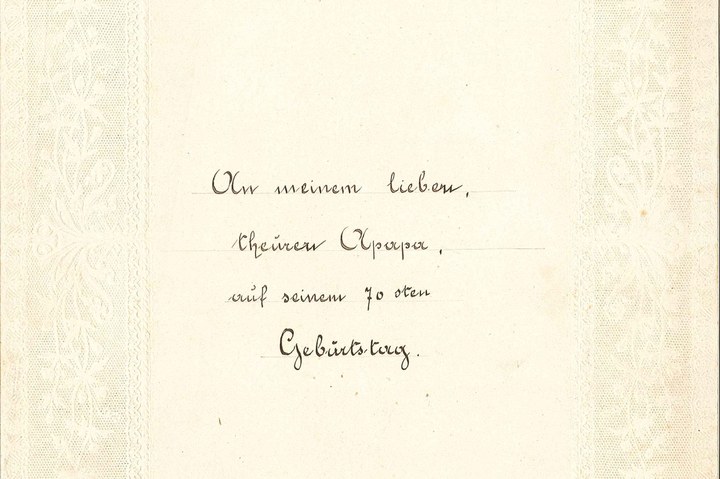 An meinem lieben,
theuren Apapa,
auf seinem 70 sten
Geburtstag.